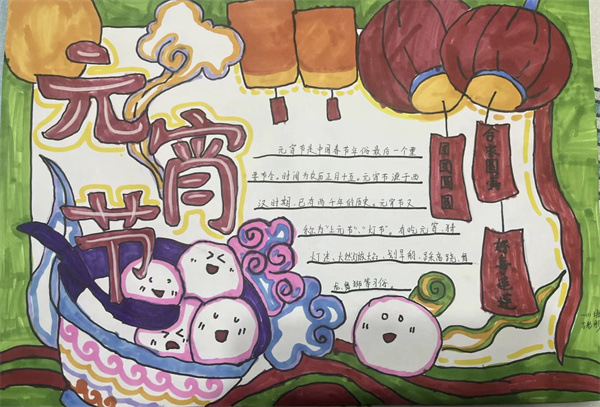 元宵节
元宵节是中国春节年俗最后一个重
要节令。时间为农历正月十五。元宵节源于西
汉时期,已有两千年的历史。元宵节又
称为“上元节”、“灯节”。有吃元宵、猜
灯迷、大燃灯放火台、划旱船、踩高跷、舞
龙舞狮等习俗。
团团圆圆
合家团兴
好事连连